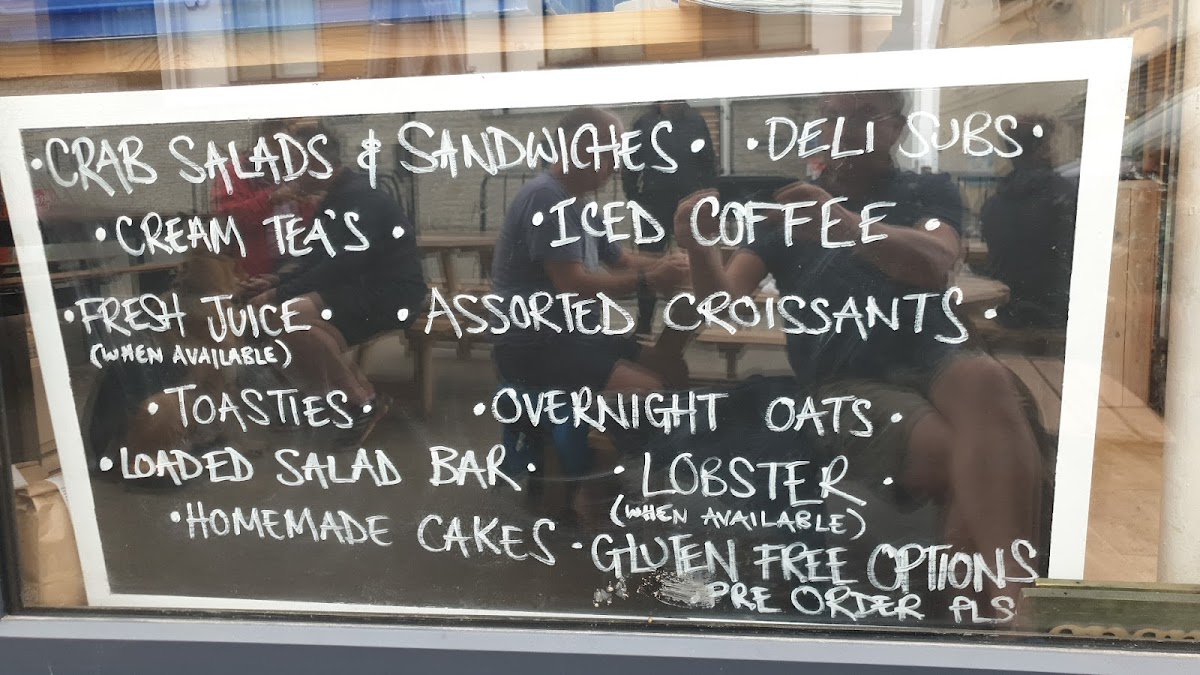 •CRAB SALADS & SANDWICHES• •DELI SUBS•
•CREAM TEA'S• •ICED COFFEE•
•FRESH JUICE• •ASSORTED CROISSANTS•
(WHEN AVAILABLE)
•TOASTIES• •OVERNIGHT OATS•
•LOADED SALAD BAR• •LOBSTER•
(WHEN AVAILABLE)
•HOMEMADE CAKES •GLUTEN FREE OPTIONS
•PRE ORDER PLS